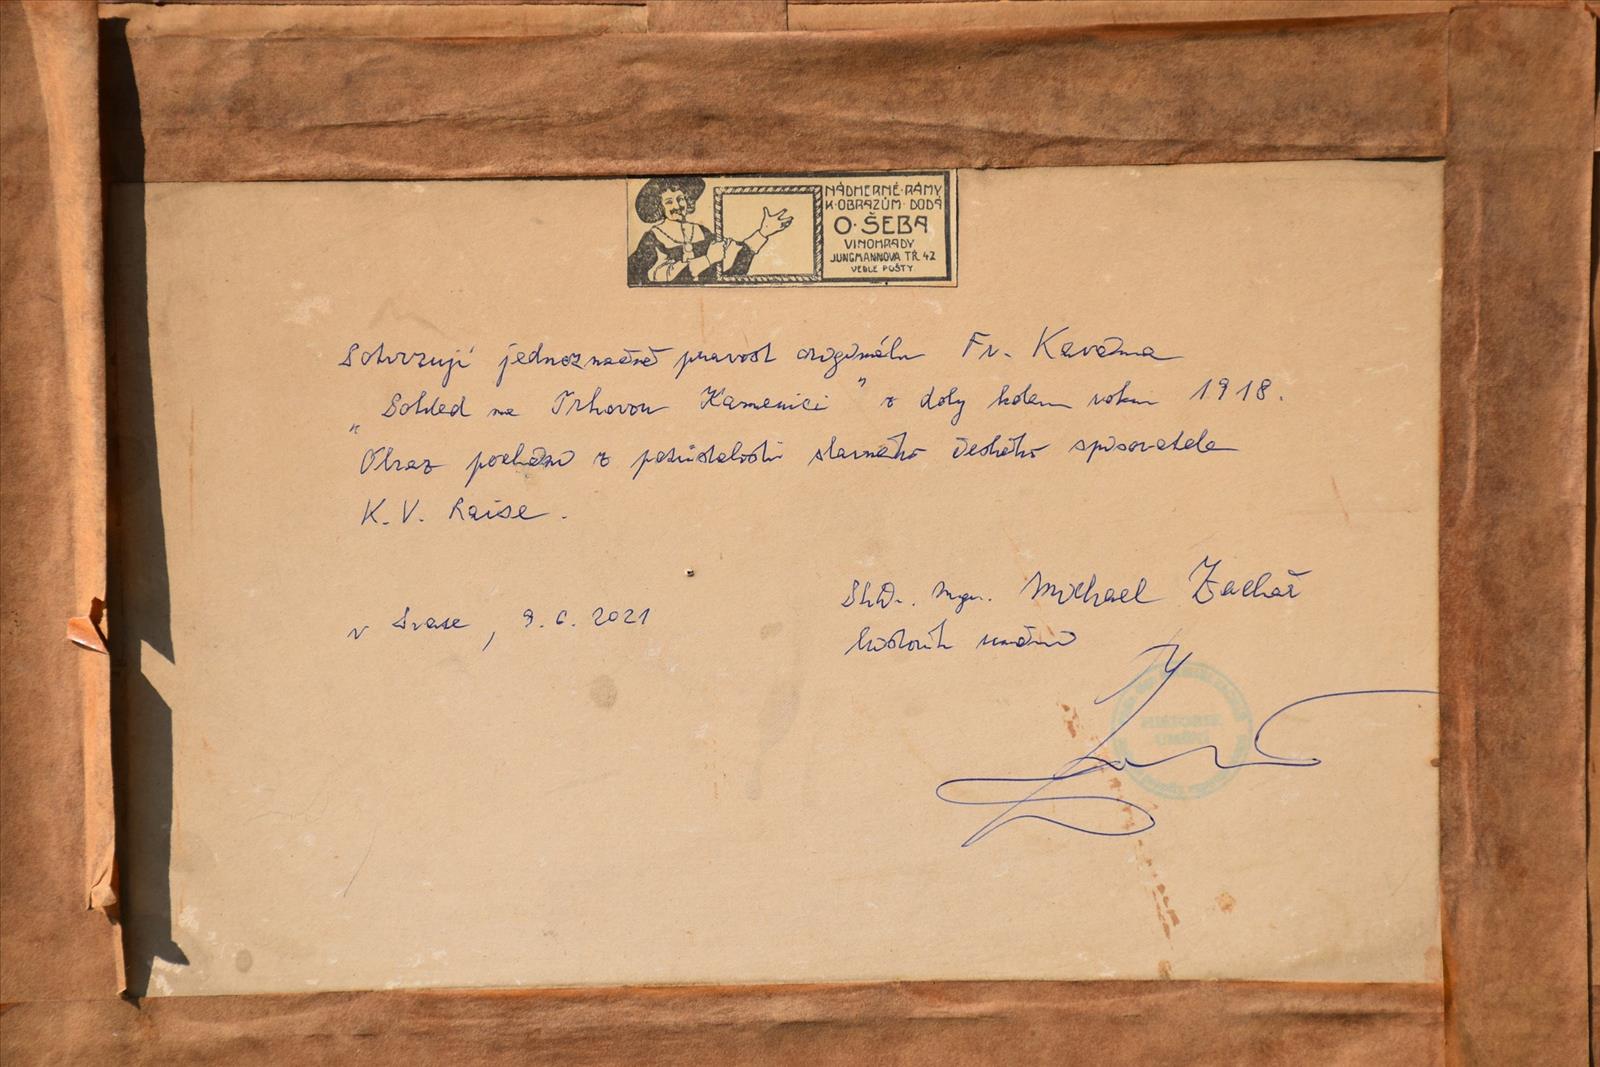 NÁDHERNÉ·RÁMY
K·OBRAZŮM·DODÁ
O·ŠEBA
VINOHRADY
JUNGMANNOVA TŘ. 42
VEDLE POŠTY
Potvrzuji jednoznačně pravost originálu Fr. Kavána
„Pohled na Trhovou Kamenici" z doby kolem roku 1918.
Obraz pochází z pozůstalosti slavného českého spisovatele
K. V. Raise.
V Praze, 9. 6. 2021
PhDr. Mgr. Michael Zachař
historik umění
HISTORIK
UMĚNÍ